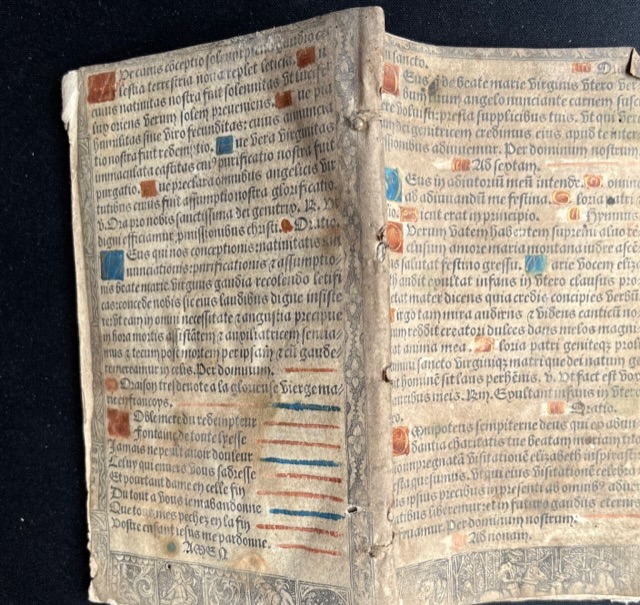 lestia terrestria noua replet leticia.
cuius natiuitas nostra fuit solennitas Ut luci-
fer oriens verum solem preueniens.
humilitas sine viro fecunditas: cuius annuncia
tio nostra fuit redemptio. ue vera virginitas
immaculata castitas cui⁹ purificatio nostra fuit
purgatio. ue preclara omnibus angelicis vir
tutibus cuius fuit assumptio nostra glorificatio.
v. Ora pro nobis sanctissima dei genitrix.
digni efficiamur pmissionibus christi. Oratio.
Eus qui nos conceptionis natiuitatis
nunciationis: purificationis ⁊ assumptio-
nis beate marie virginis gaudia recolendo letifi
cas: concede nobis sic eius laudibus digne insiste
re: vt eam in omni necessitate ⁊ angustia precipue
in hora mortis assistricem ⁊ auxiliatricem sentia-
mus ⁊ tecum post mortem per ipsam ⁊ cū gaude-
re mereamur in celis. Per dominum.
Oraison tresdeuote a la glorieuse vierge ma-
rie en francoys.
Oble mere du redempteur
Fontaine de toute lyesse
Jamais ne peult auoir douleur
Celuy qui enuers vous sadresse
Et pourtant dame en celle fin
Du tout a vous iem abandonne
Que tous mes pechez en la fin
Vostre enfant iesus me pardonne.
AMEN
sancto.
Eus q de beate marie virginis vtero
bum tuum angelo nunciante carnem
re voluisti: presta supplicibus tuis. Ut qui
dei genitricem credimus eius apud te
ssionibus adiuuemur. Per dominum nostrum
Ad sextam.
Eus in adiutoriū meū intende.
ad adiuuandū me festina. loria
icut erat in principio. Hymn
Verum vatem habentem supremi
clausum amore maria montana
salutat festino gressu. arie vocem
audit exultat infans in vtero clausus
mater dicens quia credis concipies
rgo tam mira audiens ⁊ videns cantici
reddit creatori dulces dans melos
anima mea. loria patri genitoque
sancto virginiqz matri que dei natum
homine sit laus perhēnis. v. Vt fact est vox
auribus meis. Exultauit infans in
Oratio.
Mnipotens sempiterne deus qui ex
dantia charitatis tue beatam mariam
impregnatā visitatione elizabeth inspirasti
presta quesumus. vt qui eius visitatione
ipsius precibus in presenti ab omnib⁹
libremur et in futuro gaudiis
fruamur. Per dominum nostrum:
Ad nonam.